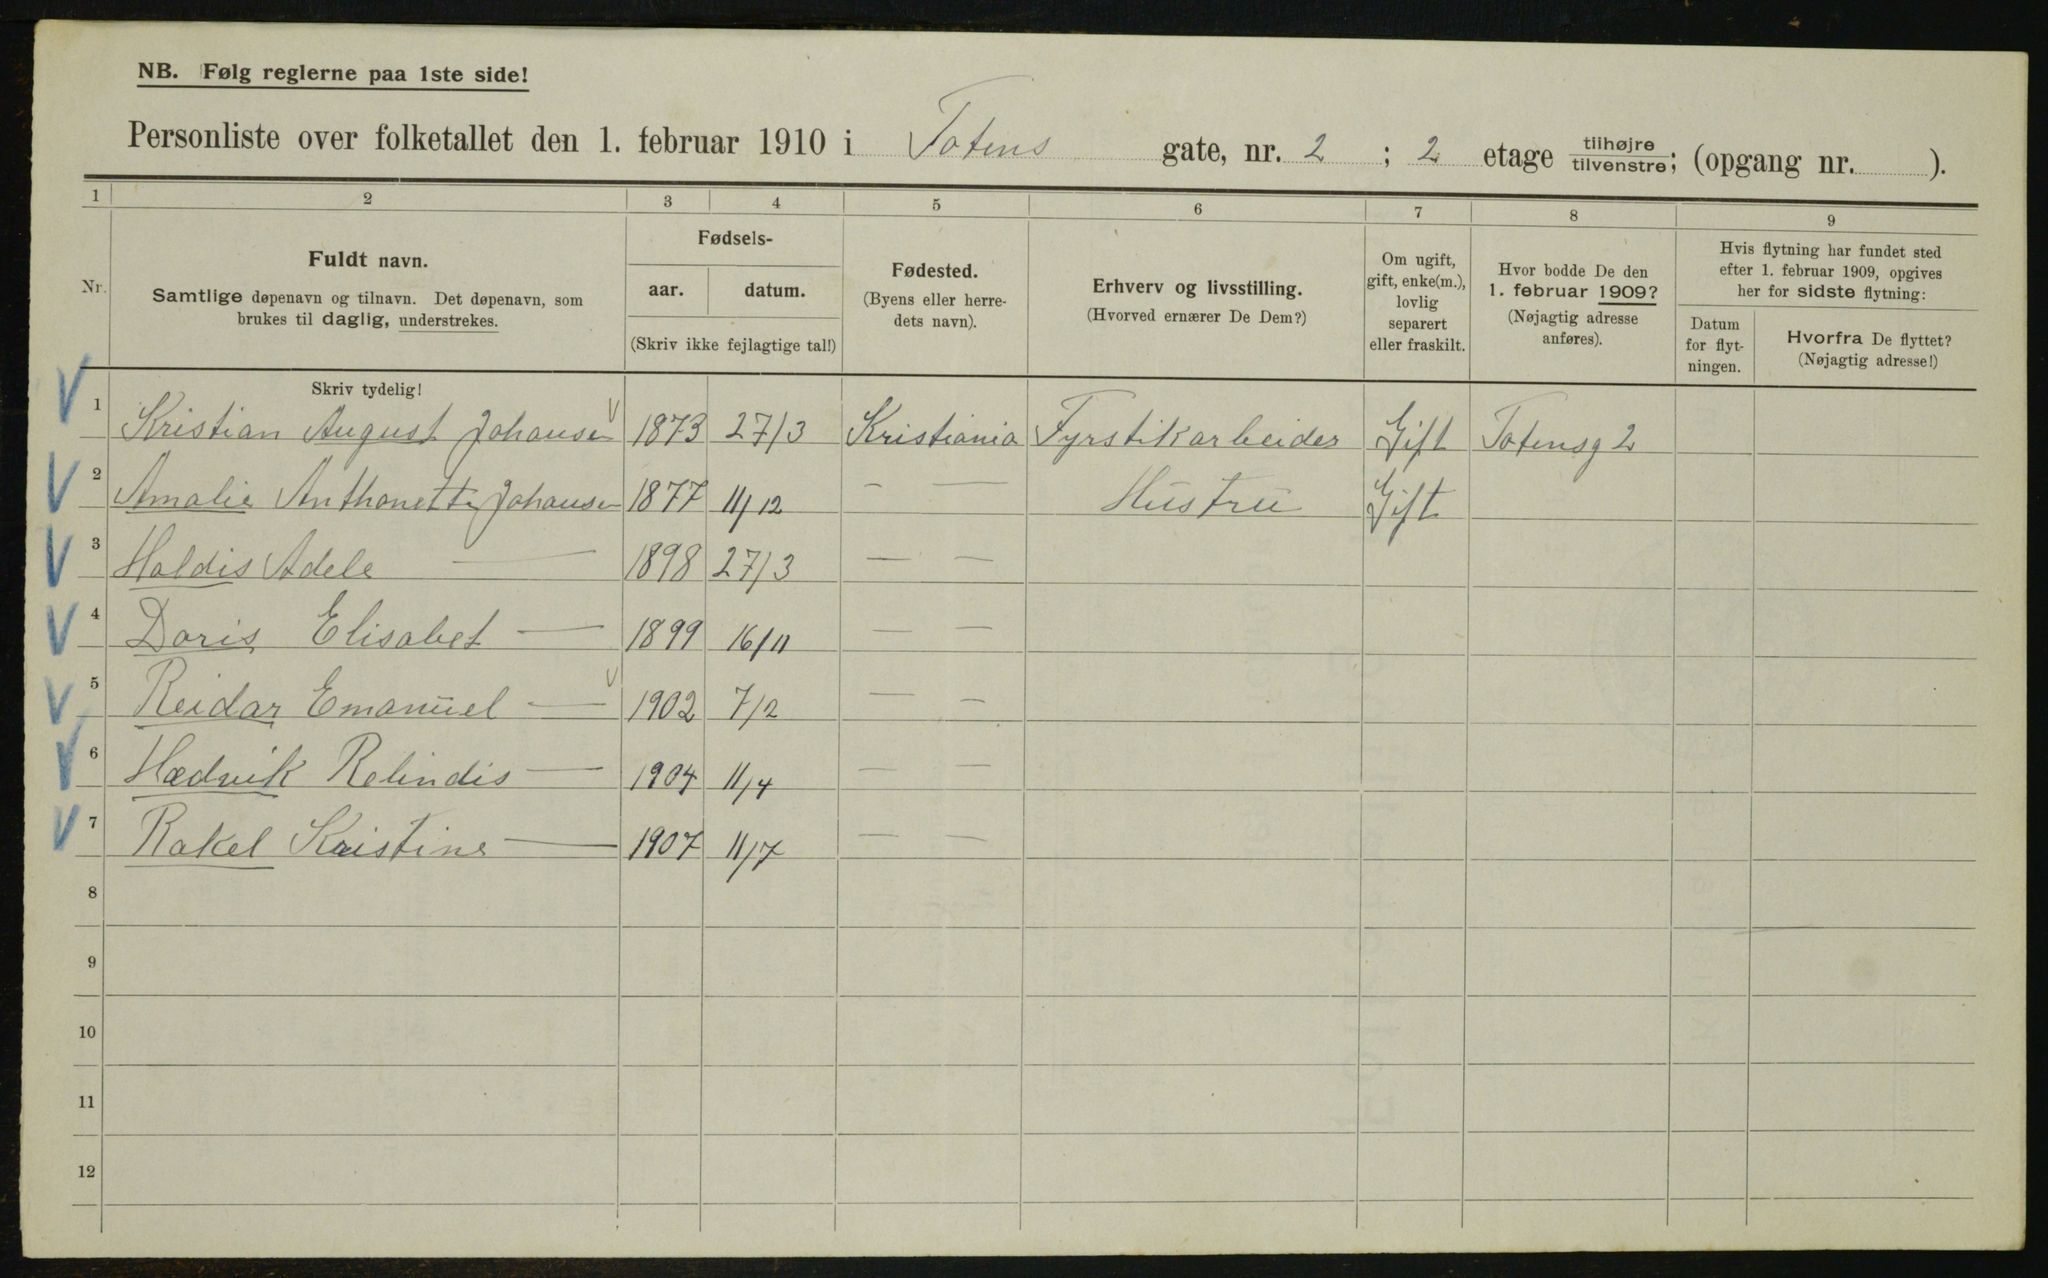 NB. Følg reglerne paa 1ste side!
Personliste over folketallet den 1. februar 1910 i Totens gate, nr. 2 ; 2 etage tilhøjre / tilvenstre; (opgang nr. ).
1 2 3 4 5 6 7 8 9
Nr.
Fuldt navn.
Samtlige døpenavn og tilnavn. Det døpenavn, som
brukes til daglig, understrekes.
Fødsels-
aar. datum.
(Skriv ikke fejlagtige tal!)
Fødested.
(Byens eller herre-
dets navn).
Erhverv og livsstilling.
(Hvorved ernærer De Dem?)
Om ugift,
gift, enke(m.),
lovlig
separert
eller fraskilt.
Hvor bodde De den
1. februar 1909?
(Nøjagtig adresse
anføres).
Hvis flytning har fundet sted
efter 1. februar 1909, opgives
her for sidste flytning:
Datum
for flyt-
ningen.
Hvorfra De flyttet?
(Nøjagtig adresse!)
Skriv tydelig!
1 Kristian August Johansen 1873 27/3 Kristiania Fyrstikarbeider Gift Totensg 2
2 Amalie Anthonette Johansen 1877 11/12 — — Hustru Gift
3 Haldis Adele — 1898 27/3 — —
4 Doris Elisabet — 1899 16/11 — —
5 Reidar Emanuel — 1902 7/2 — —
6 Hædvik Relindis — 1904 11/4 — —
7 Rakel Kristine — 1907 11/7 — —
8
9
10
11
12